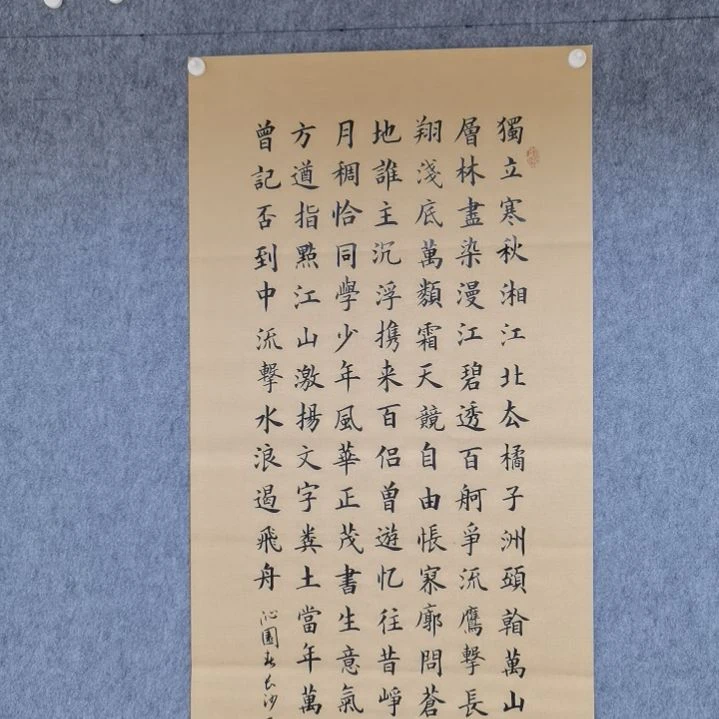 獨立寒秋湘江北厺橘子洲頭萬山
層林盡染漫江碧透百舸爭流鷹擊長
翔淺底萬類霜天競自由悵寥廓問蒼
地誰主沉浮携来百侣曾遊忆往昔崢
月稠恰同學少年風華正茂書生意氣
方遒指點江山激揚文字糞土當年萬
曾記否到中流擊水浪遏飛舟 沁園春长沙